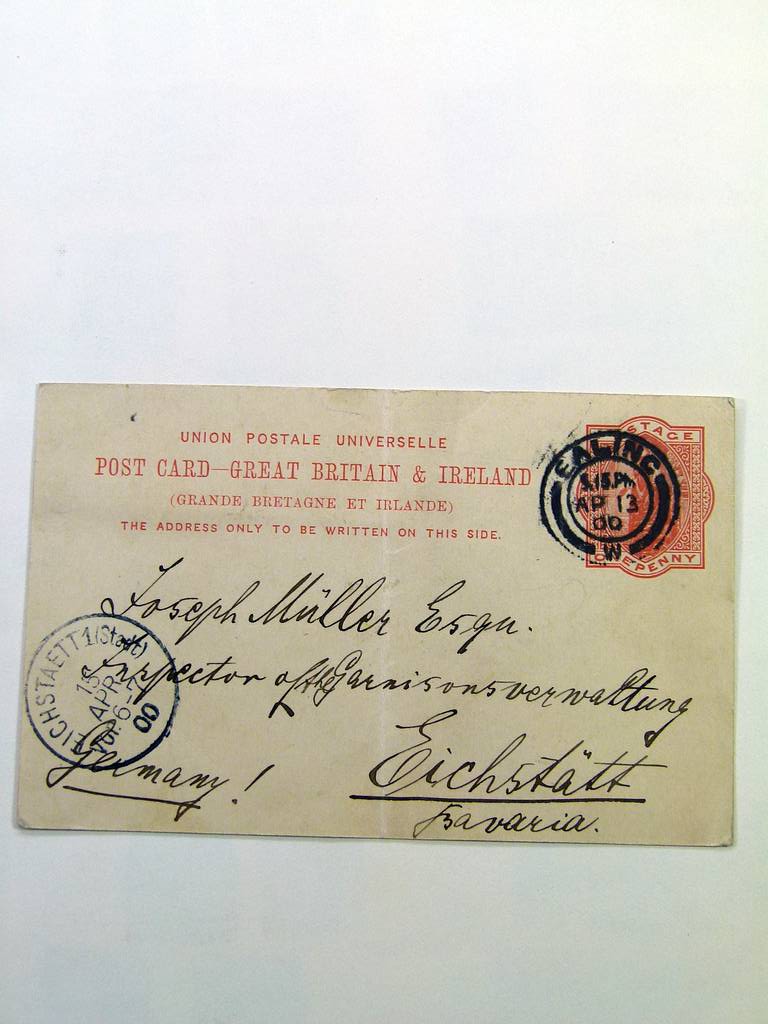 UNION POSTALE UNIVERSELLE
POST CARD—GREAT BRITAIN & IRELAND
(GRANDE BRETAGNE ET IRLANDE)
THE ADDRESS ONLY TO BE WRITTEN ON THIS SIDE.
STAGE
ONE PENNY
EALING
5.15.PM
AP 13
00
W
Joseph Müller Esqu.
Inspector of the Garnisonsverwaltung
Eichstätt
Bavaria.
Germany!
EICHSTAETT 1 (Stadt)
15
APR
00